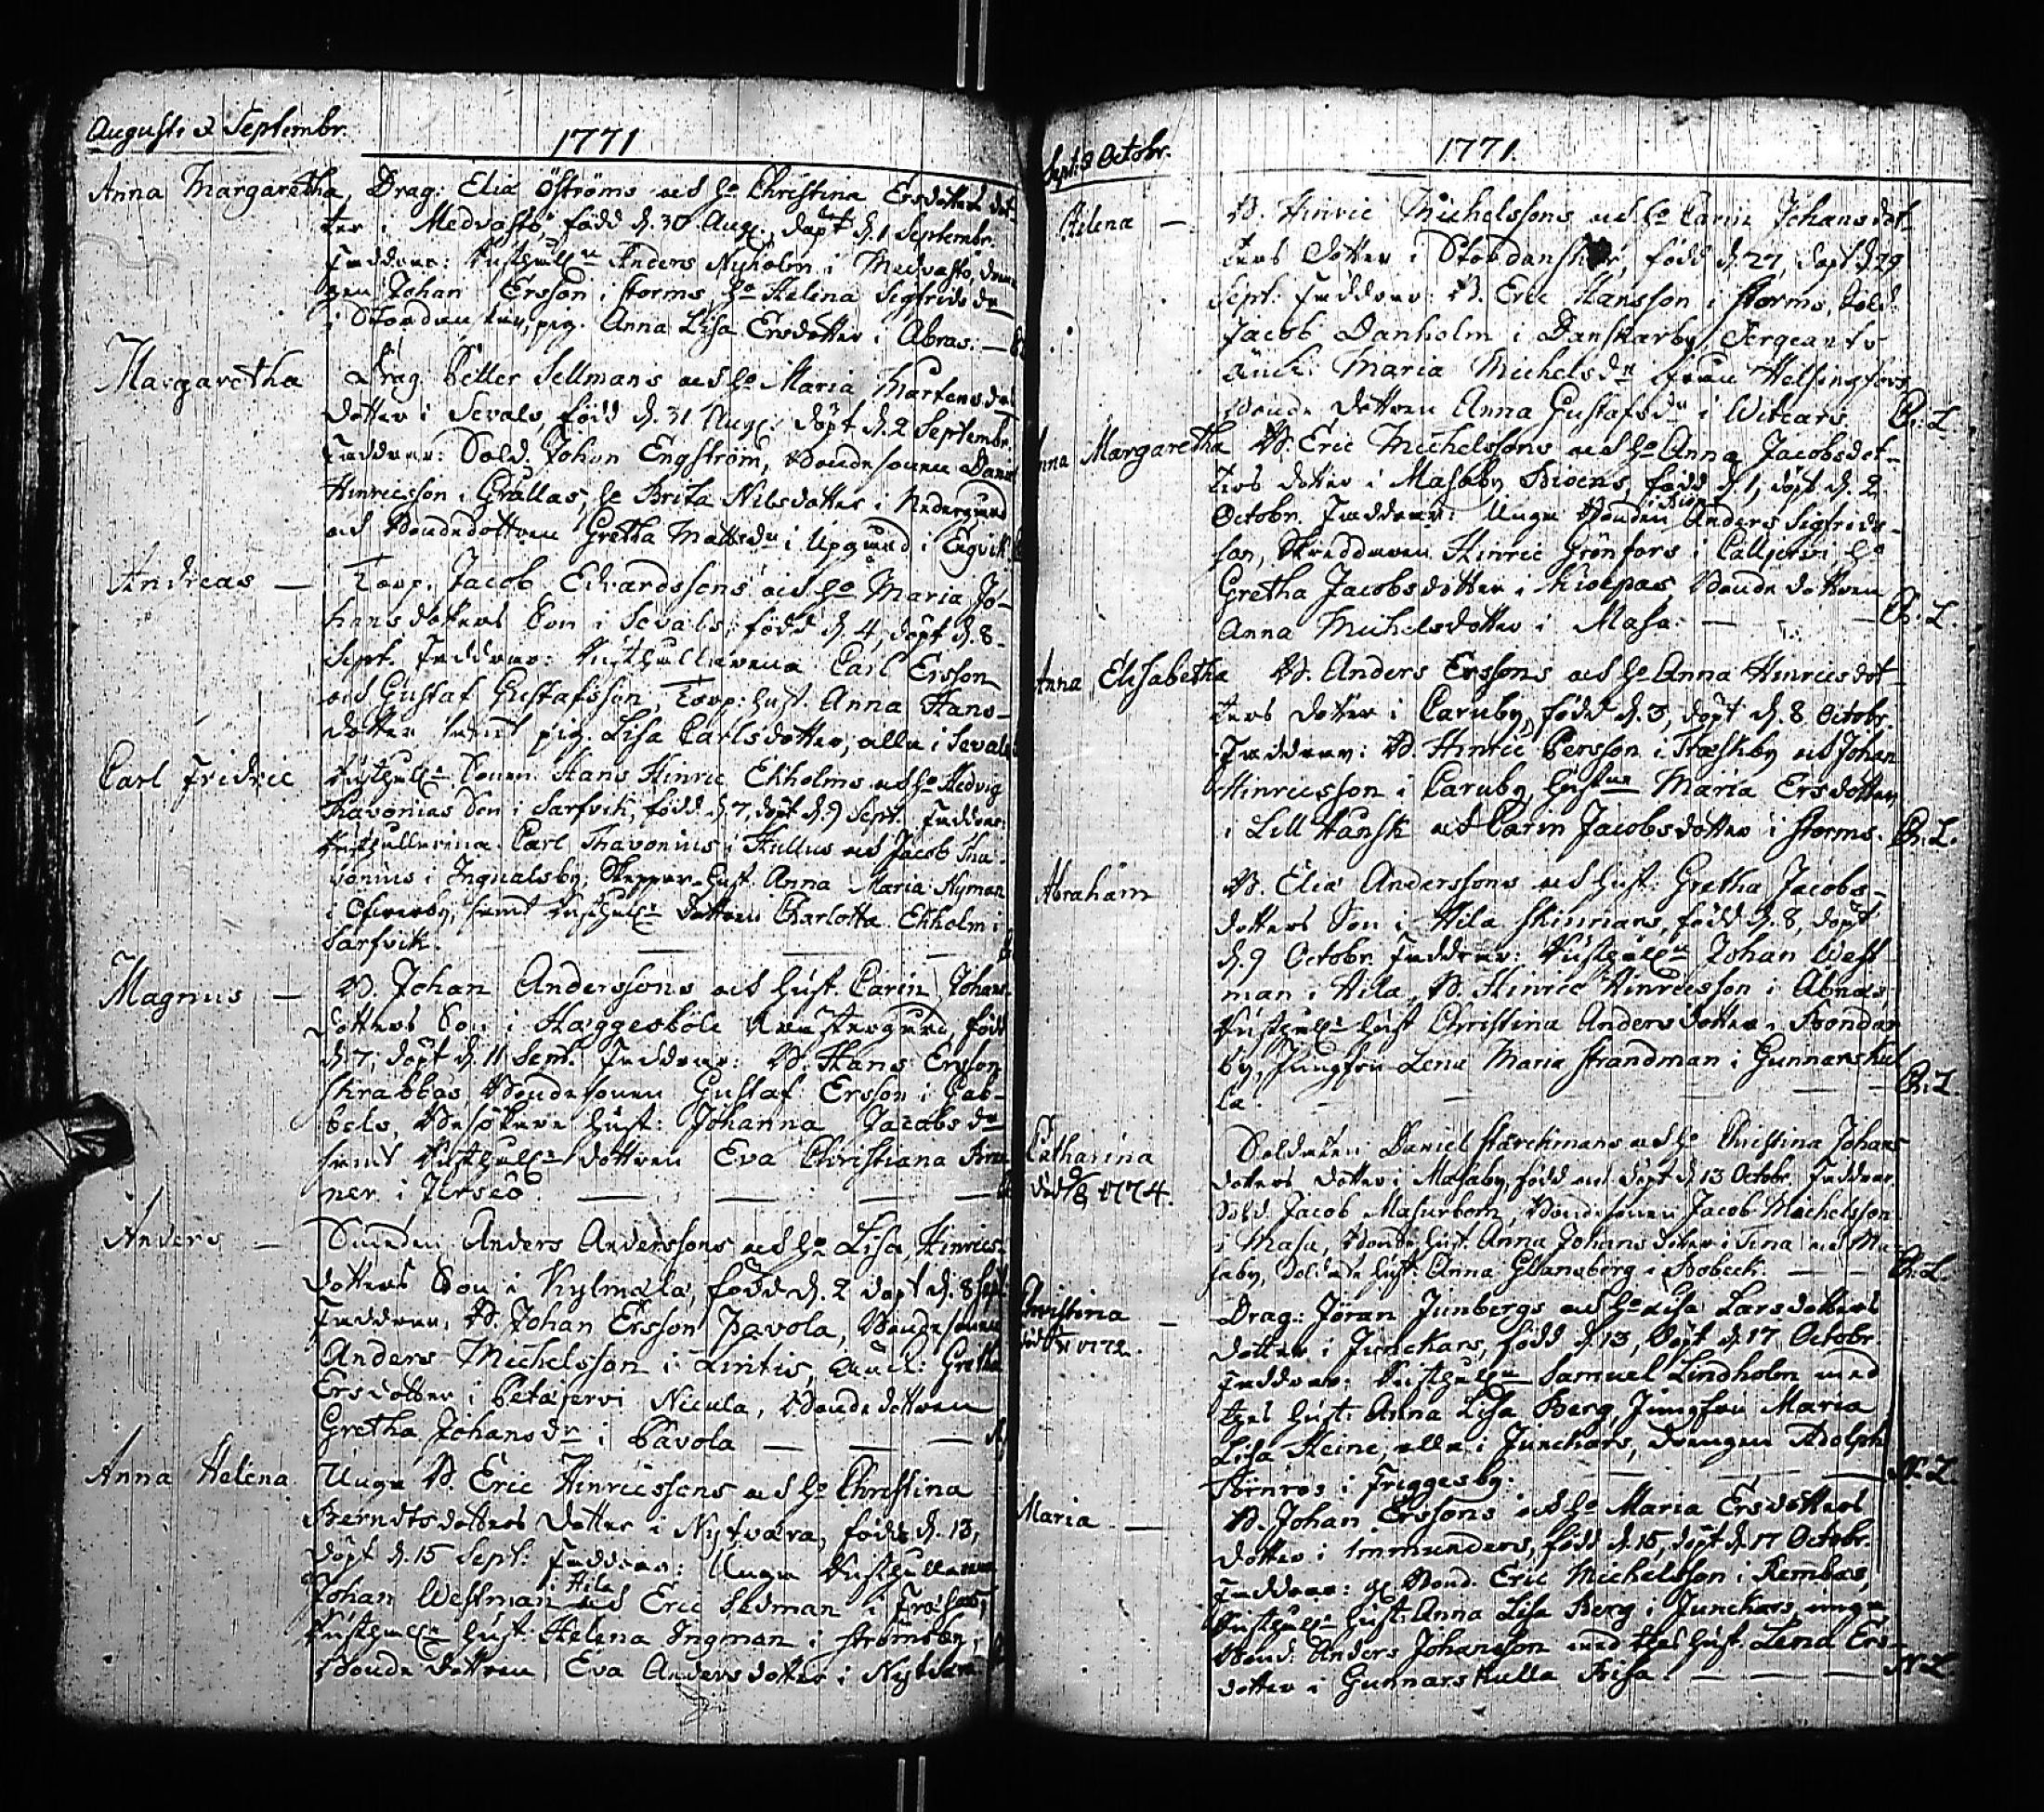 Augusti & Septembr.
1771
Anna Margaretha, Drag: Eliæ Öströms och h:o Christina Ersdotters dot-
ter i Medvasto, född d. 30 Aug. döpt d. 1 Septembr.
Faddrar: Anders Nyholm i Medvasto, drän-
gen Johan Ersson i Storms, h:o Helena Sigfrids dr
i pig. Anna Lisa Ersdotter i Abras. —
Margaretha
Drag. Petter Sellmans och h:o Maria Mårtens
dotter i Sevals, född d. 31 Aug. döpt d. 2 Septembr.
Faddrar: Sold. Johan Engström, Bondesonen Daniel
Hinricsson i Grållas, h:o Brita Nilsdotter i Nedergård
och Bondedottren Gretha Mattsdr i Upgård i Engvik
Andreas —
Torp. Jacob Edvardssons och h:o Maria Jo-
hansdotters Son i Sevals, född d. 4, döpt d. 8
Sept. Faddrar: Carl Ersson
och Gustaf Gustafsson, Torp: hust. Anna Hans-
dotter samt pig. Lisa Carlsdotter, alla i Sevals
Carl Fridric
Sonen Hans Hinric Ekholms och h:o Hedvig
Thavonias Son i Sarfvik, född d. 7, döpt d. 9 Sept. Faddrar:
Carl Thavonius i Kullus och Jacob Tha-
vonius i Ingvalsby, Skeppar-hust. Anna Maria Nyman
i samt dottren Charlotta Ekholm i
Sarfvik.
Magnus —
B. Johan Anderssons och hust. Carin Johans-
dotters Son i Häggesböle född
d. 7, döpt d. 11 Sept. Faddrar: B. Hans Ersson
Skrabbas, Bondesonen Gustaf Ersson i Gab-
bels, hust: Johanna Jacobsdr
samt dottren Eva Christiana
ner i Jerseö. — — — —
Anders —
Smeden Anders Anderssons och h:o Lisa Hinrics-
dotters Son i Kylmälä, född d. 2 döpt d. 8 Sept.
Faddrar, B. Johan Ersson Pavola, Bondesonen
Anders Michelsson i Lintis, Gretha
Ersdotter i Petäjervi Nicula, Bondedottren
Gretha Johansdr i Pavola — — —
Anna Helena
Unga B. Eric Hinricssons och h:o Christina
Berndtsdotters dotter i Nytvara, född d. 13,
döpt d. 15 Sept: Faddrar: Unga
i Hila
Johan Westman och Eric Sedman i
hust: Helena Ingman i Strömsby,
Bonde dottren Eva Andersdotter i Nytvara
Sept: & Octobr.
1771
Helena —
B. Hinric Michelssons och h:o Carin Johansdot-
ters dotter i Stordanskar, född d. 27, döpt d. 29
Sept. Faddrar: B. Eric Hansson i Storms, Sold.
Jacob Danholm i Danskarby, Sergeants
Maria Michelsdr från Helsingfors,
Bonde dottren Anna Gustafsdr i Witcars. Gr: L.
Anna Margaretha B. Eric Michelssons och h:o Anna Jacobsdot-
ters dotter i Masaby född d. 1, döpt d. 2
Octobr. Faddrar: Unga Bonden Anders Sigfrids-
son, Skreddaren Hinric Grönfors i Calljervi, h:o
Gretha Jacobsdotter i Bonde dottren
Anna Michelsdotter i Masa. — — Gr: L.
Anna Elisabetha B. Anders Erssons och h:o Anna Hinricsdot-
ters dotter i Caruby, född d. 3, döpt d. 8 Octobr.
Faddrar: B. Hinric Persson i Træskby och Johan
Hinricsson i Caruby, Maria Ersdotter
i Lill Hansk och Carin Jacobsdotter i Storms. Gr: L.
Abraham
B. Eliæ Anderssons och hust: Gretha Jacobs-
dotters Son i Hila Skinnars, född d. 8, döpt
d. 9 Octobr. Faddrar: Johan West-
man i Hila, B. Hinric Hinricsson i Abras
hust Christina Andersdotter i
by, Jungfru Lena Maria Strandman i Gunnarskul-
la. — — — — Gr: L.
Catharina
död 1774.
Soldaten Daniel Starckmans och h:o Christina Johans
dotters dotter i Masaby, född och döpt d. 13 Octobr. Faddrar
Sold. Jacob Masurbom, Bondesonen Jacob Michelsson
i Masa, Bonde hust. Anna Johansdotter i Tina i Ma-
saby, Soldate hust: Anna Glansberg i Bobeck. — — Gr: L.
Christina —
död 1772.
Drag: Jöran Junbergs och h:o Lisa Larsdotters
dotter i Junckars, född d. 13, döpt d. 17 Octobr.
Faddrar: Samuel Lindholm med
thes hust: Anna Lisa Berg, Jungfru Maria
Lisa Heine, alla i Junckars, drengen Adolph
Törnros i Friggesby. — — — N. L.
Maria —
B. Johan Erssons och h:o Maria Ersdotters
dotter i Immunders, född d. 15, döpt d. 17 Octobr.
Faddrar: gl Bond. Eric Michelsson i Rembas,
hust: Anna Lisa Berg i Junckars, unga
Bond: Anders Johansson med thes hust. Lena Ers-
dotter i Gunnarskulla Frisa. — — — N. L.